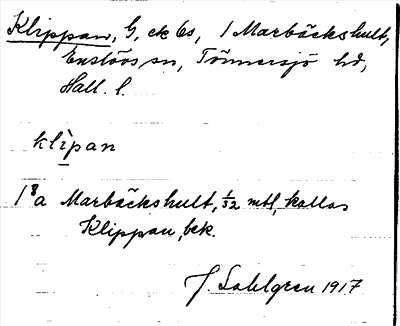 Klippan, G, ek 6s, 1 Marbäckshult,
Enslövs sn, Tönnersjö hd,
Hall. l.
klipan
1⁸a Marbäckshult, 1/32 mtl, kallas
Klippan, bek.
J. Sahlgren 1917